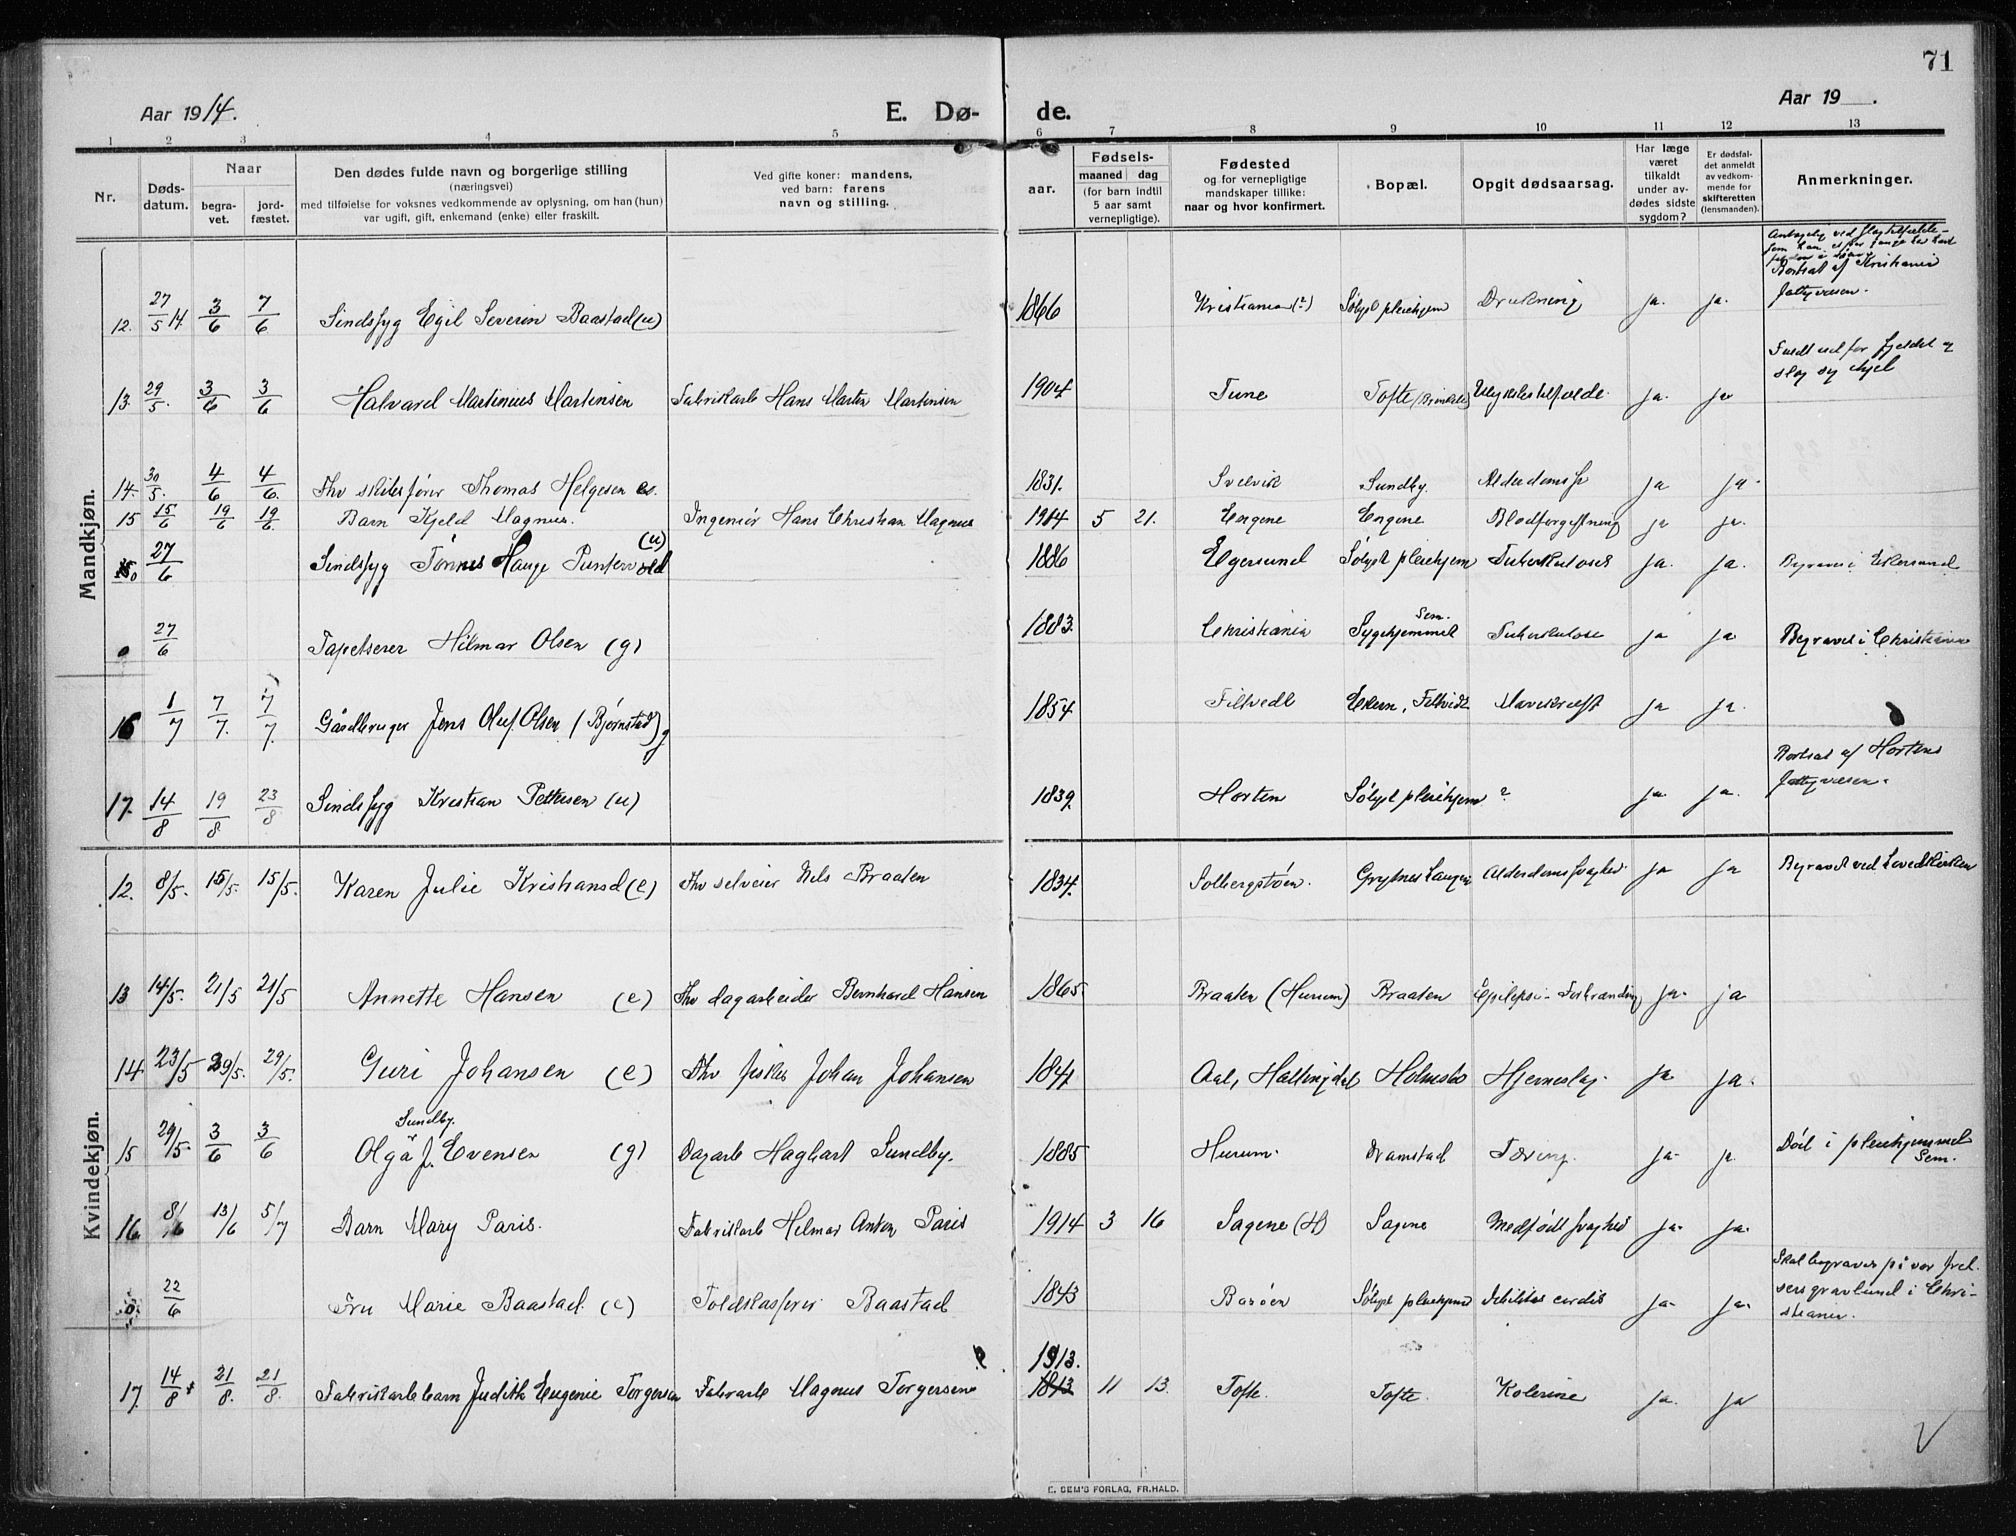 71
Aar 1914.
E. Dø-
de.
Aar 19 .
1 2 3 4 5 6 7 8 9 10 11 12 13
Nr.
Døds-
datum.
Naar
begra-
vet.
jord-
fæstet.
Den dødes fulde navn og borgerlige stilling
(næringsvei)
med tilføielse for voksnes vedkommende av oplysning, om han (hun)
var ugift, gift, enkemand (enke) eller fraskilt.
Ved gifte koner: mandens,
ved barn: farens
navn og stilling.
aar.
Fødsels-
maaned dag
(for barn indtil
5 aar samt
vernepligtige).
Fødested
og for vernepligtige
mandskaper tillike:
naar og hvor konfirmert.
Bopæl.
Opgit dødsaarsag.
Har læge
været
tilkaldt
under av-
dødes sidste
sygdom?
Er dødsfal-
det anmeldt
av vedkom-
mende for
skifteretten
(lensmanden).
Anmerkninger.
Mandkjøn.
12. 27/5 14. 3/6 7/6 Sindssyg Egil Severin Baastad (u) 1866 Kristiania (?) Sølyst pleiehjem Drukning ja. ja. Bortsat af Kristiania
13. 29/5. 3/6 3/6 Halvard Martinius Martinsen Fabrikarb Hans Martin Martinsen 1904. Tune Tofte Ulykkestilfælde. ja. ja
14. 30/5. 4/6 4/6. Fhv skibsfører Thomas Helgesen e. 1831. Svelvik Sundby. Alderdomss ja ja.
15 15/6 19/6 19/6. Barn Kjeld Magnus. Ingeniør Hans Christian Magnus 1914 5 21. Engene Engene Blodforgiftning ja ja.
27/6 Sindssyg Tønnes Hauge Puntervold (u) 1886 Egersund Sølyst pleiehjem Tuberkulose ja. ja. Begravet i Ekersund
0 27/6 Tapetserer Hilmar Olsen (g) 1883. Christiania Sem. Sygehjemmet Tuberkulose ja ja Begravet i Christiania
16 1/7 7/7. 7/7. Gårdbruger Jens Oluf. Olsen (Bjørnstad) g 1854 Filtvedt Ekern, Filtvedt Mavekræft ja ja.
17. 14/8 19/8 23/8 Sindssyg Kristian Pettersen (u) 1839. Horten Sølyst pleiehjem ? ja. ja. Bortsat af Hortens
Kvindekjøn.
12. 8/5. 15/5. 15/5. Karen Julie Kristiansd (e) Fhv selveier Nils Braaten 1834. Solbergstøen. Grytnes Alderdomssvaghed ja ja Begravet ved
13 14/5. 21/5 21/5 Annette Hansen (e) Fhv dagarbeider Bernhard Hansen 1865. Braaten (Hurum) Braaten Epilepsi - Forbrænding ja. ja
14 23/5 29/5. 29/5. Guri Johansen (e) Fhv fisker Johan Johansen 1841 Aal, Hallingdal Holmsbo Hjerneslag. ja ja.
15 29/5. 3/6 3/6 Olga J. Evensen Sundby. (g) Dagarb Hagbart Sundby. 1885 Hurum. Dramstad Tæring. ja. ja. Død i pleiehjemmet Sem.
16 8/6 13/6 5/7 Barn Mary Paris. Fabrikarb Helmar Anton Paris 1914 3 16 Sagene (H) Sagene Medfødt svaghed ja. ja.
0 22/6 Fru Marie Baastad. (e) Toldkasserer Baastad 1843 Barøen Sølyst pleiehjem Debilitas cordis ja. ja. Skal begraves på vor frel-
sers gravlund i Chri-
stiania.
17. 14/8 21/8. 21/8. Fabrikarb barn Judith Eugenie Torgersen Fabrarb Magnus Torgersen 1913. 1813 11 13. Tofte. Tofte. Kolerine ja. ja
E. SEM'S FORLAG, FR.HALD.